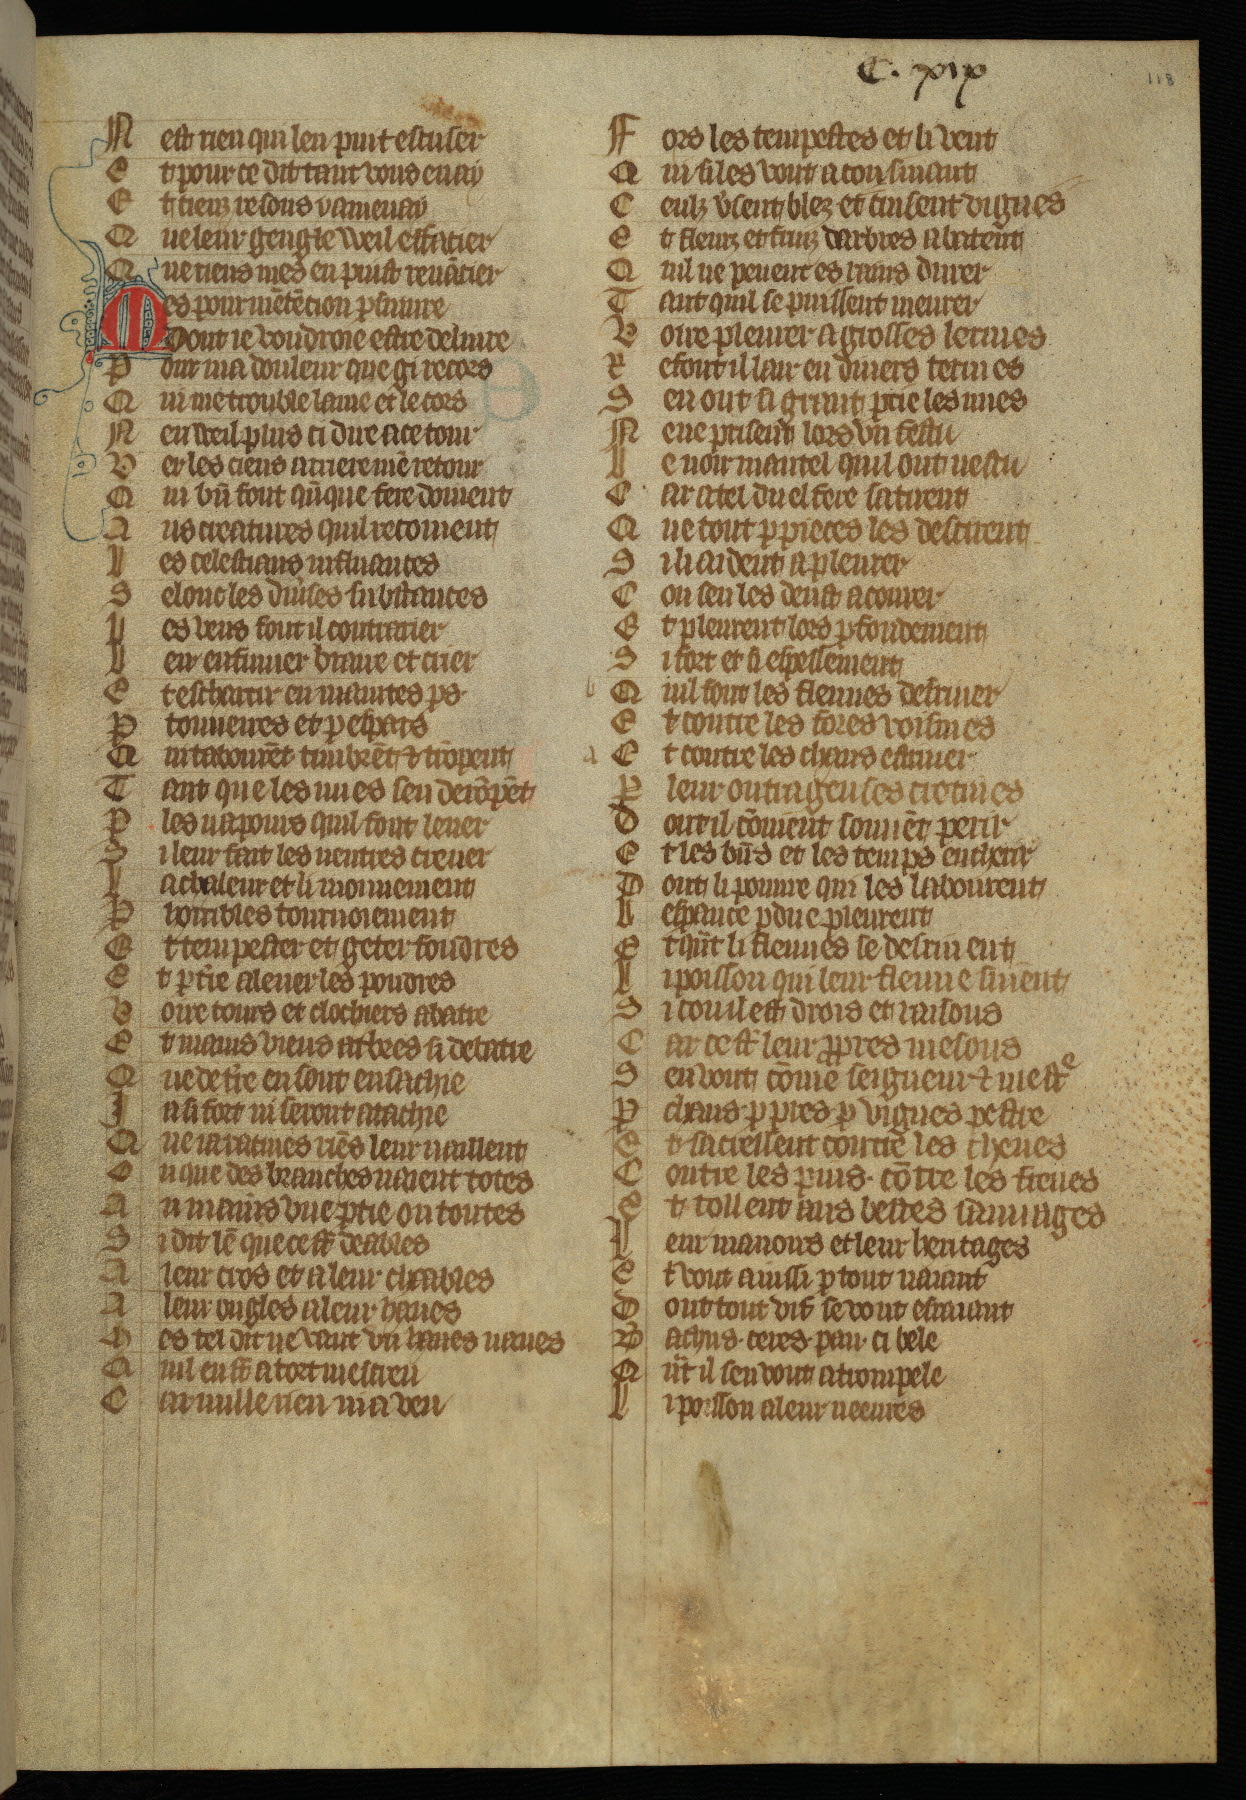 C. xix
118
N est rien qui len puit escuser
E t pour ce dit tant vous en ay
E t tieux resons y amenay
Q ue leur gengle weil effacier
Q ue riens mes en puist renācier
Mes pour mētēcion pſuiure
Dont ie voudroie estre deliure
P our ma douleur que gi recors
Q ui me trouble lame et le cors
N en weil plus ci dire a ce tour
V er les ciens arriere mē retour
Q ui bn̄ font qūque fere doiuent
A us creatures quil recoiuent
L es celestiaus influances
S elonc les diuses substances
L es vens font il contrarier
L er enflamer braire et crier
E t esclarcir en maintes ps
P tonneires et p espars
Q ui tabourēt timbrēt & trōpent
T ant que les nues sen derōpēt
P les uapours quil font leuer
S i leur fait les uentres creuer
L a chaleur et li mouuement
P horribles tournoiement
E t tempester et geter foudres
E t p tr̄e aleuer les poudres
V oire tours et clochiers abatre
E t mains viens arbres si debatre
Q ue de tr̄e en sont ensachie
J a si fort ni seront atachie
Q ue ia racines riēs leur uaillent
Q uque des branches naient totes
A u mains vne ptie ou toutes
S i dit lē que ce st̄ deables
A leur cros et a leur chaables
A leur ongles a leur hanes
M es tel dit ne vaut vn̄ lances naues
Q uil en st̄ a tort mescreu
C ar nulle rien ni a veu
F ors les tempestes et li vent
Q ui si les vont aconsiuant
C eulz v̄sent blez et cuisent vignes
E t fleurs et fruiz darbres abatent
Q uil ne peuent es rains durer
T ant quil se puissent meurer
V oire plourer a grosses lermes
R efont il lair en diuers termes
S en ont si grant ptie les nues
N eue prisent lors vn festu
L e noir mantel quil ont uestu
C ar a tel duel fere satirent
Q ue tout p pieces les descirent
S i li aident a plourer
C on sen les deust acourer
E t pleurent lors pfondement
S i fort et si espessement
b Q uil font les fleuues desriuer
E t contre les fores voisines
a E t contre les chans estriuer
P leur outrageuses cretines
D ont il cōuient souuēt perir
E t les bn̄s et les temps encherir
D ont li poure qui les labourent
L espance pdue pleurent
E t qūt li fleuues se desriuent
L i poisson qui leur fleuue siuent
S i com il est drois et raisons
C ar ce st̄ leur ppres mesons
S en vont cōme seigneur & mestre
P chans p pres p vignes pestre
E t sacrellent contre les chenes
C outre les pins. cōtre les frenes
E t tollent aus bestes sauuages
L eur manoirs et leur heritages
E t vont ainssi p tout naiant
D ont tout vif se vont esraiant
B achus. ceres. pan. cibele
Q n̄t il sen vont atrompele
L i poisson a leur neeures